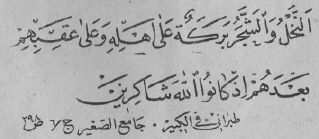 اَلنَّخْلُ وَالشَّجَرُ بَرَكَةٌ عَلٰى اَهْلِهٖ وَعَلٰى عَقِبِهِمْ
بَعْدَهُمْ اِذَا كَانُوا لِلّٰهِ شَاكِرِيْنَ
طبرانی فی الکبیر . جامع الصغیر ج ٦ ص ٢٩